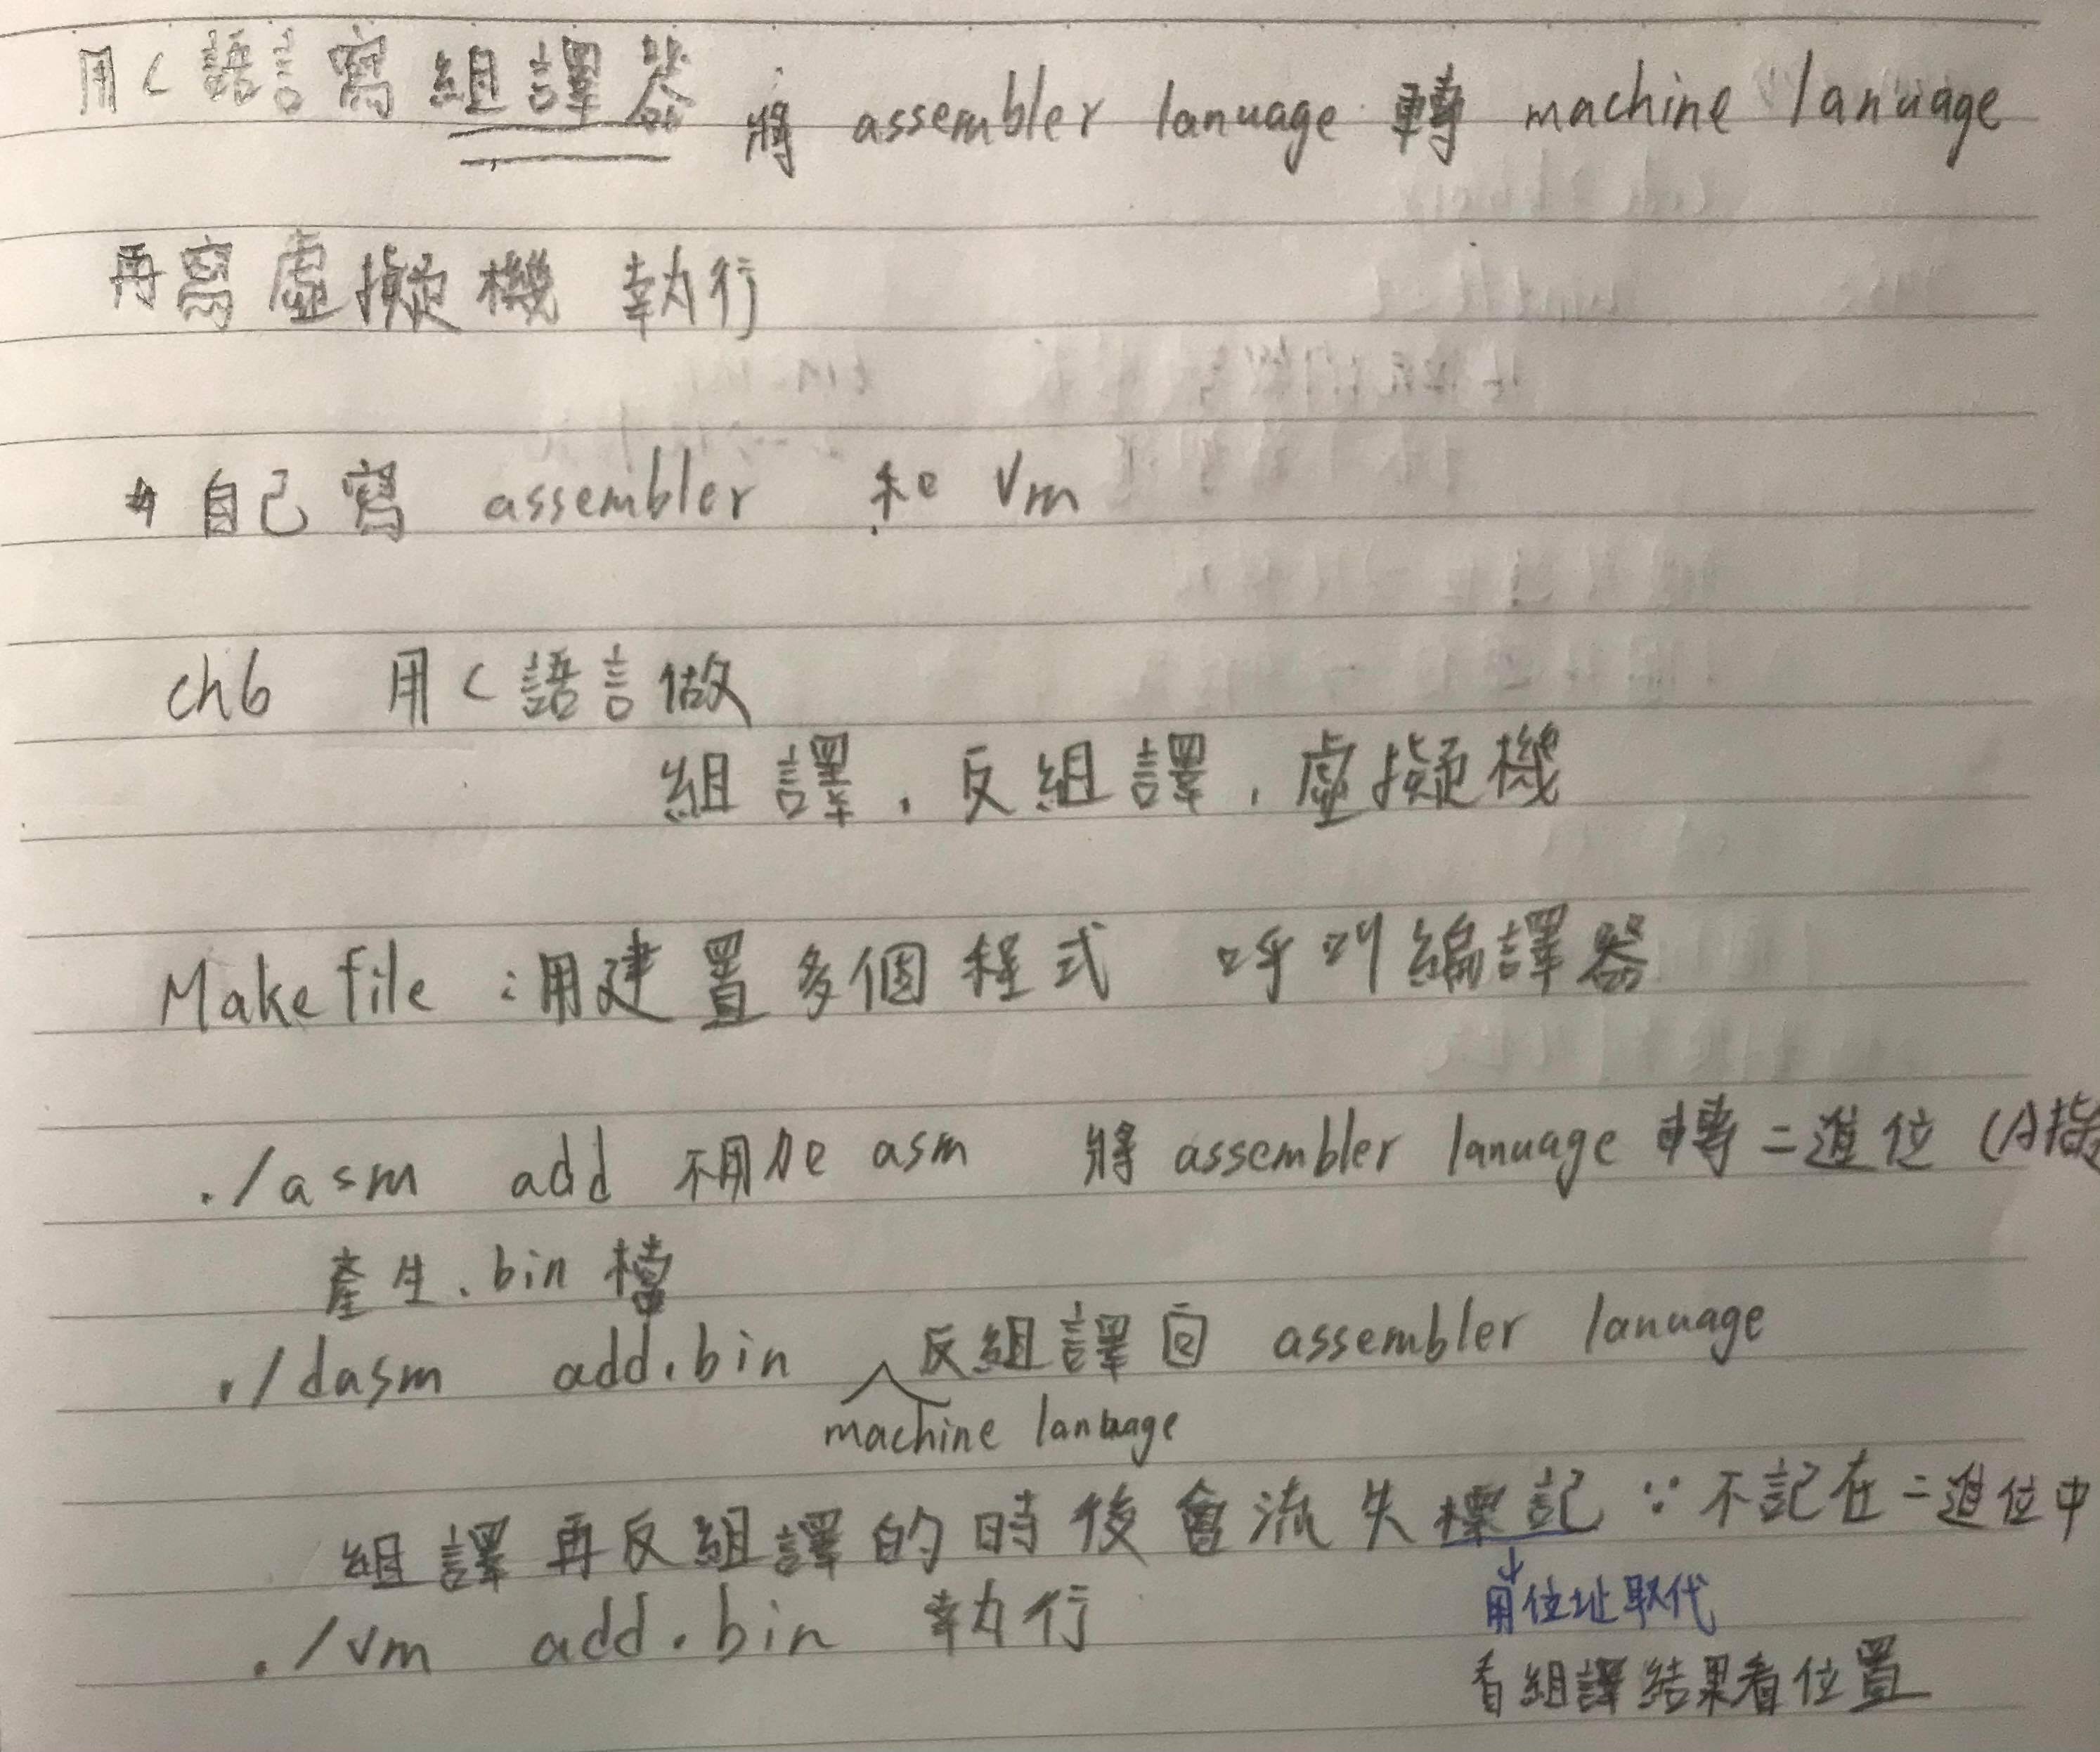 用C語言寫組譯器 將 assembler lanuage 轉 machine lanuage
再寫虛擬機 執行
自己寫 assembler 和 Vm
ch6 用C語言做
組譯, 反組譯, 虛擬機
Makefile :用建置多個程式 呼叫編譯器
./asm add 不用加 asm 將 assembler lanuage 轉二進位 (A指
產生.bin 檔
./dasm add.bin 反組譯回 assembler lanuage
machine lanuage
組譯再反組譯的時後會流失標記 ∵ 不記在二進位中
用位址取代
./vm add.bin 執行
看組譯結果看位置